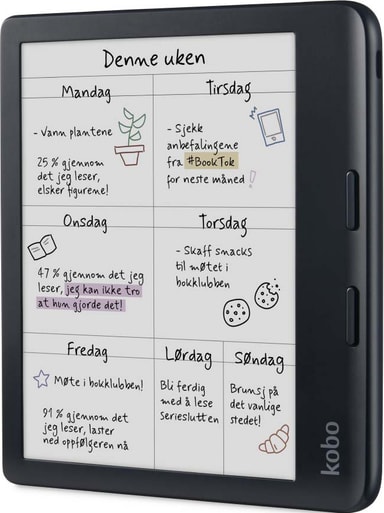 Denne uken
Mandag
- Vann plantene
25 % gjennom
det jeg leser,
elsker figurene!
Tirsdag
- Sjekk
anbefalingene
fra #BookTok
for neste måned!
Onsdag
47 % gjennom det jeg
leser, jeg kan ikke tro
at hun gjorde det!
Torsdag
- Skaff smacks
til møtet i
bokklubben
Fredag
Møte i bokklubben!
91 % gjennom det
jeg leser, laster
ned oppfølgeren nå
Lørdag
Bli ferdig
med å lese
serieslutten
Søndag
Brunsj på
det vanlige
stedet!
kobo